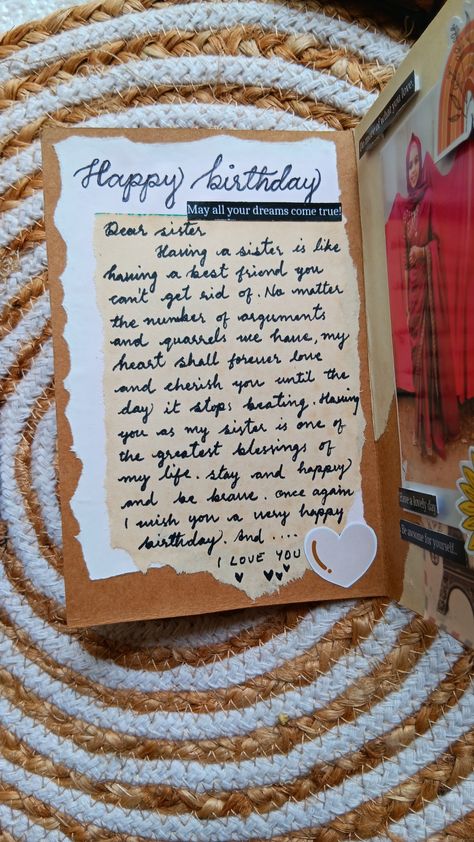 Happy birthday
May all your dreams come true!
Dear sister
Having a sister is like
having a best friend you
can't get rid of. No matter
the number of arguments
and quarrels we have, my
heart shall forever love
and cherish you until the
day it stops beating. Having
you as my sister is one of
the greatest blessings of
my life. stay and happy
and be brave. once again
I wish you a very happy
birthday. And ....
I LOVE YOU
Have a lovely day
Be awsome for yourself...